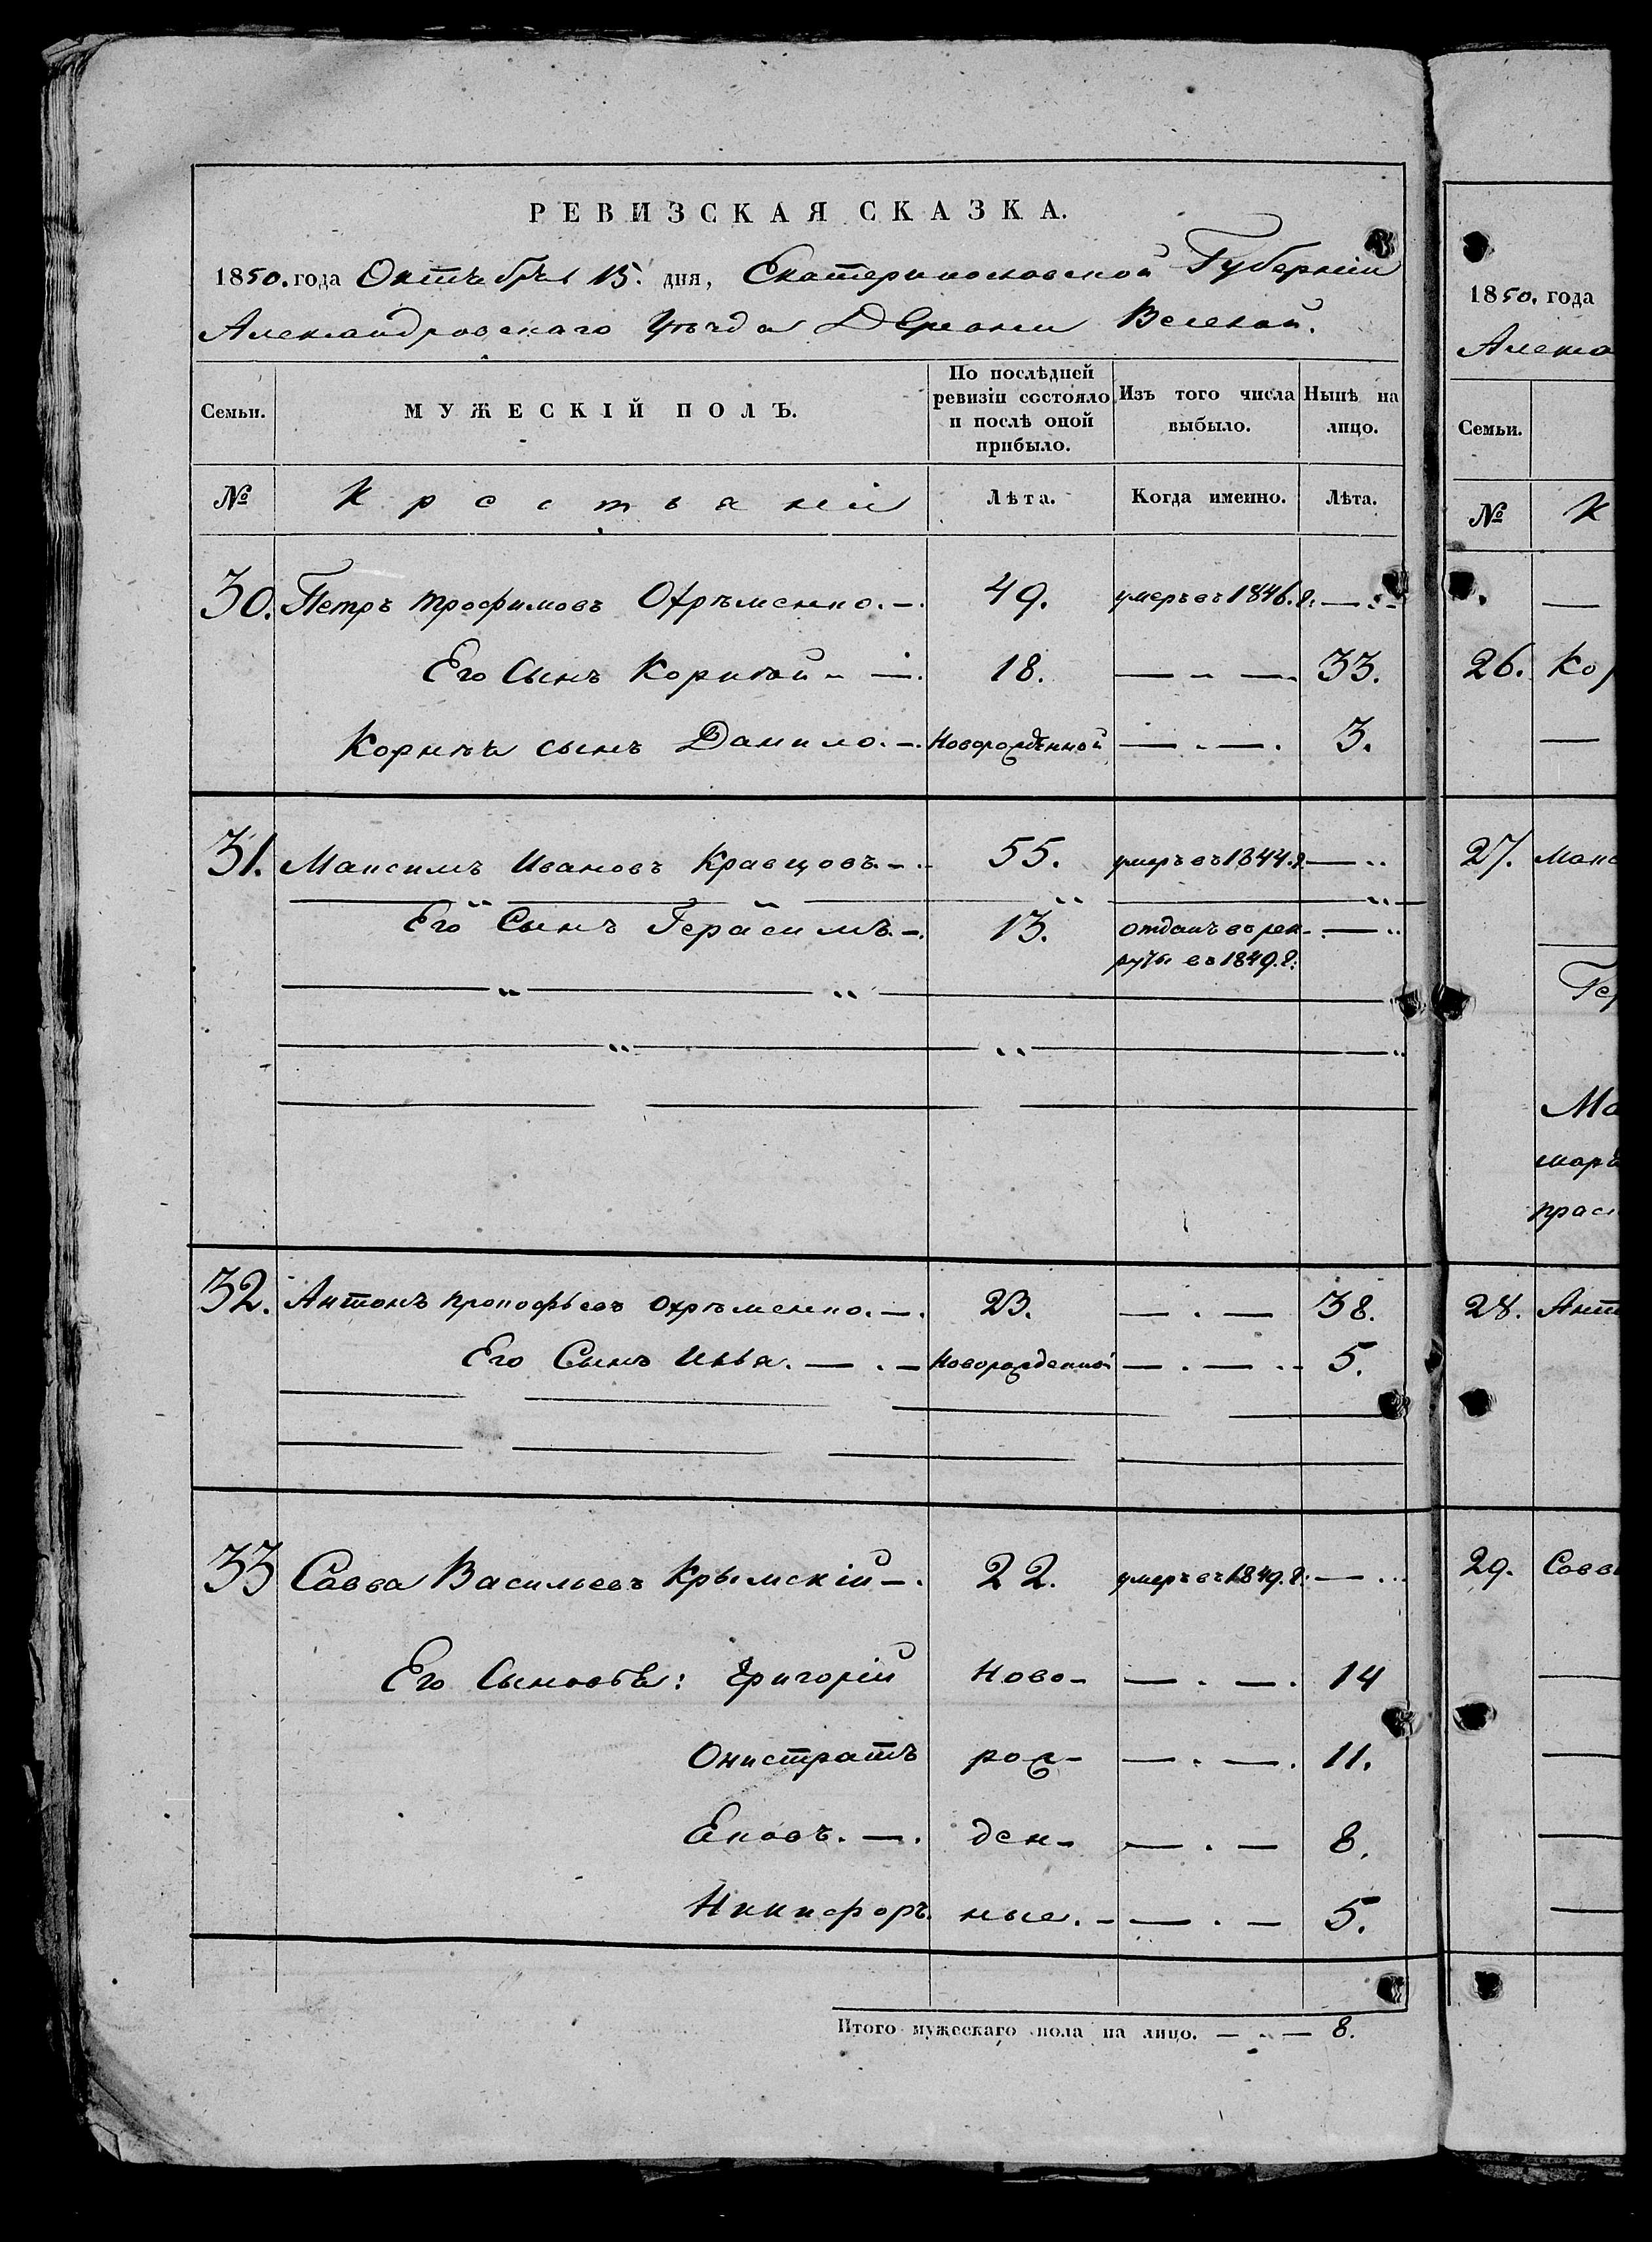 РЕВИЗСКАЯ СКАЗКА.
1850. года Октъбръ 15. дня, Екатеринославской Губерніи
Александровскаго Уъзда Деревни Веселой.
Семьи. МУЖЕСКІЙ ПОЛЪ. По послѣдней ревизіи состояло и послѣ оной прибыло. Изъ того числа выбыло. Нынѣ на лицо.
№ Крестьяніи Лѣта. Когда именно. Лѣта.
30. Петръ трофимовъ Охръменко. 49. умеръ въ 1846. г.
Его Сынъ Корнъй 18. 33.
Корнъя сынъ Данило. Новорожденной 3.
31. Максимъ Ивановъ Кравцовъ. 55. умеръ въ 1844. г.
Его Сынъ Герасимъ. 13. отданъ въ рек-
руты въ 1849. г.
32. Антонъ прокофьевъ охръменко. 23. 38.
Его Сынъ Илья. Новорожденной 5.
33 Савва Васильевъ Крымскій 22. умеръ въ 1849. г.
Его Сыновья: Григорій Ново- 14
Онистратъ рож- 11.
ден- 8.
Никифоръ ные. 5.
Итого мужескаго пола на лицо. 8.
1850. года
Алекса
Семьи.
№ К
26. Кор
27. Макс
Гер
Ма
мар
прас
28. Анто
29. Савв